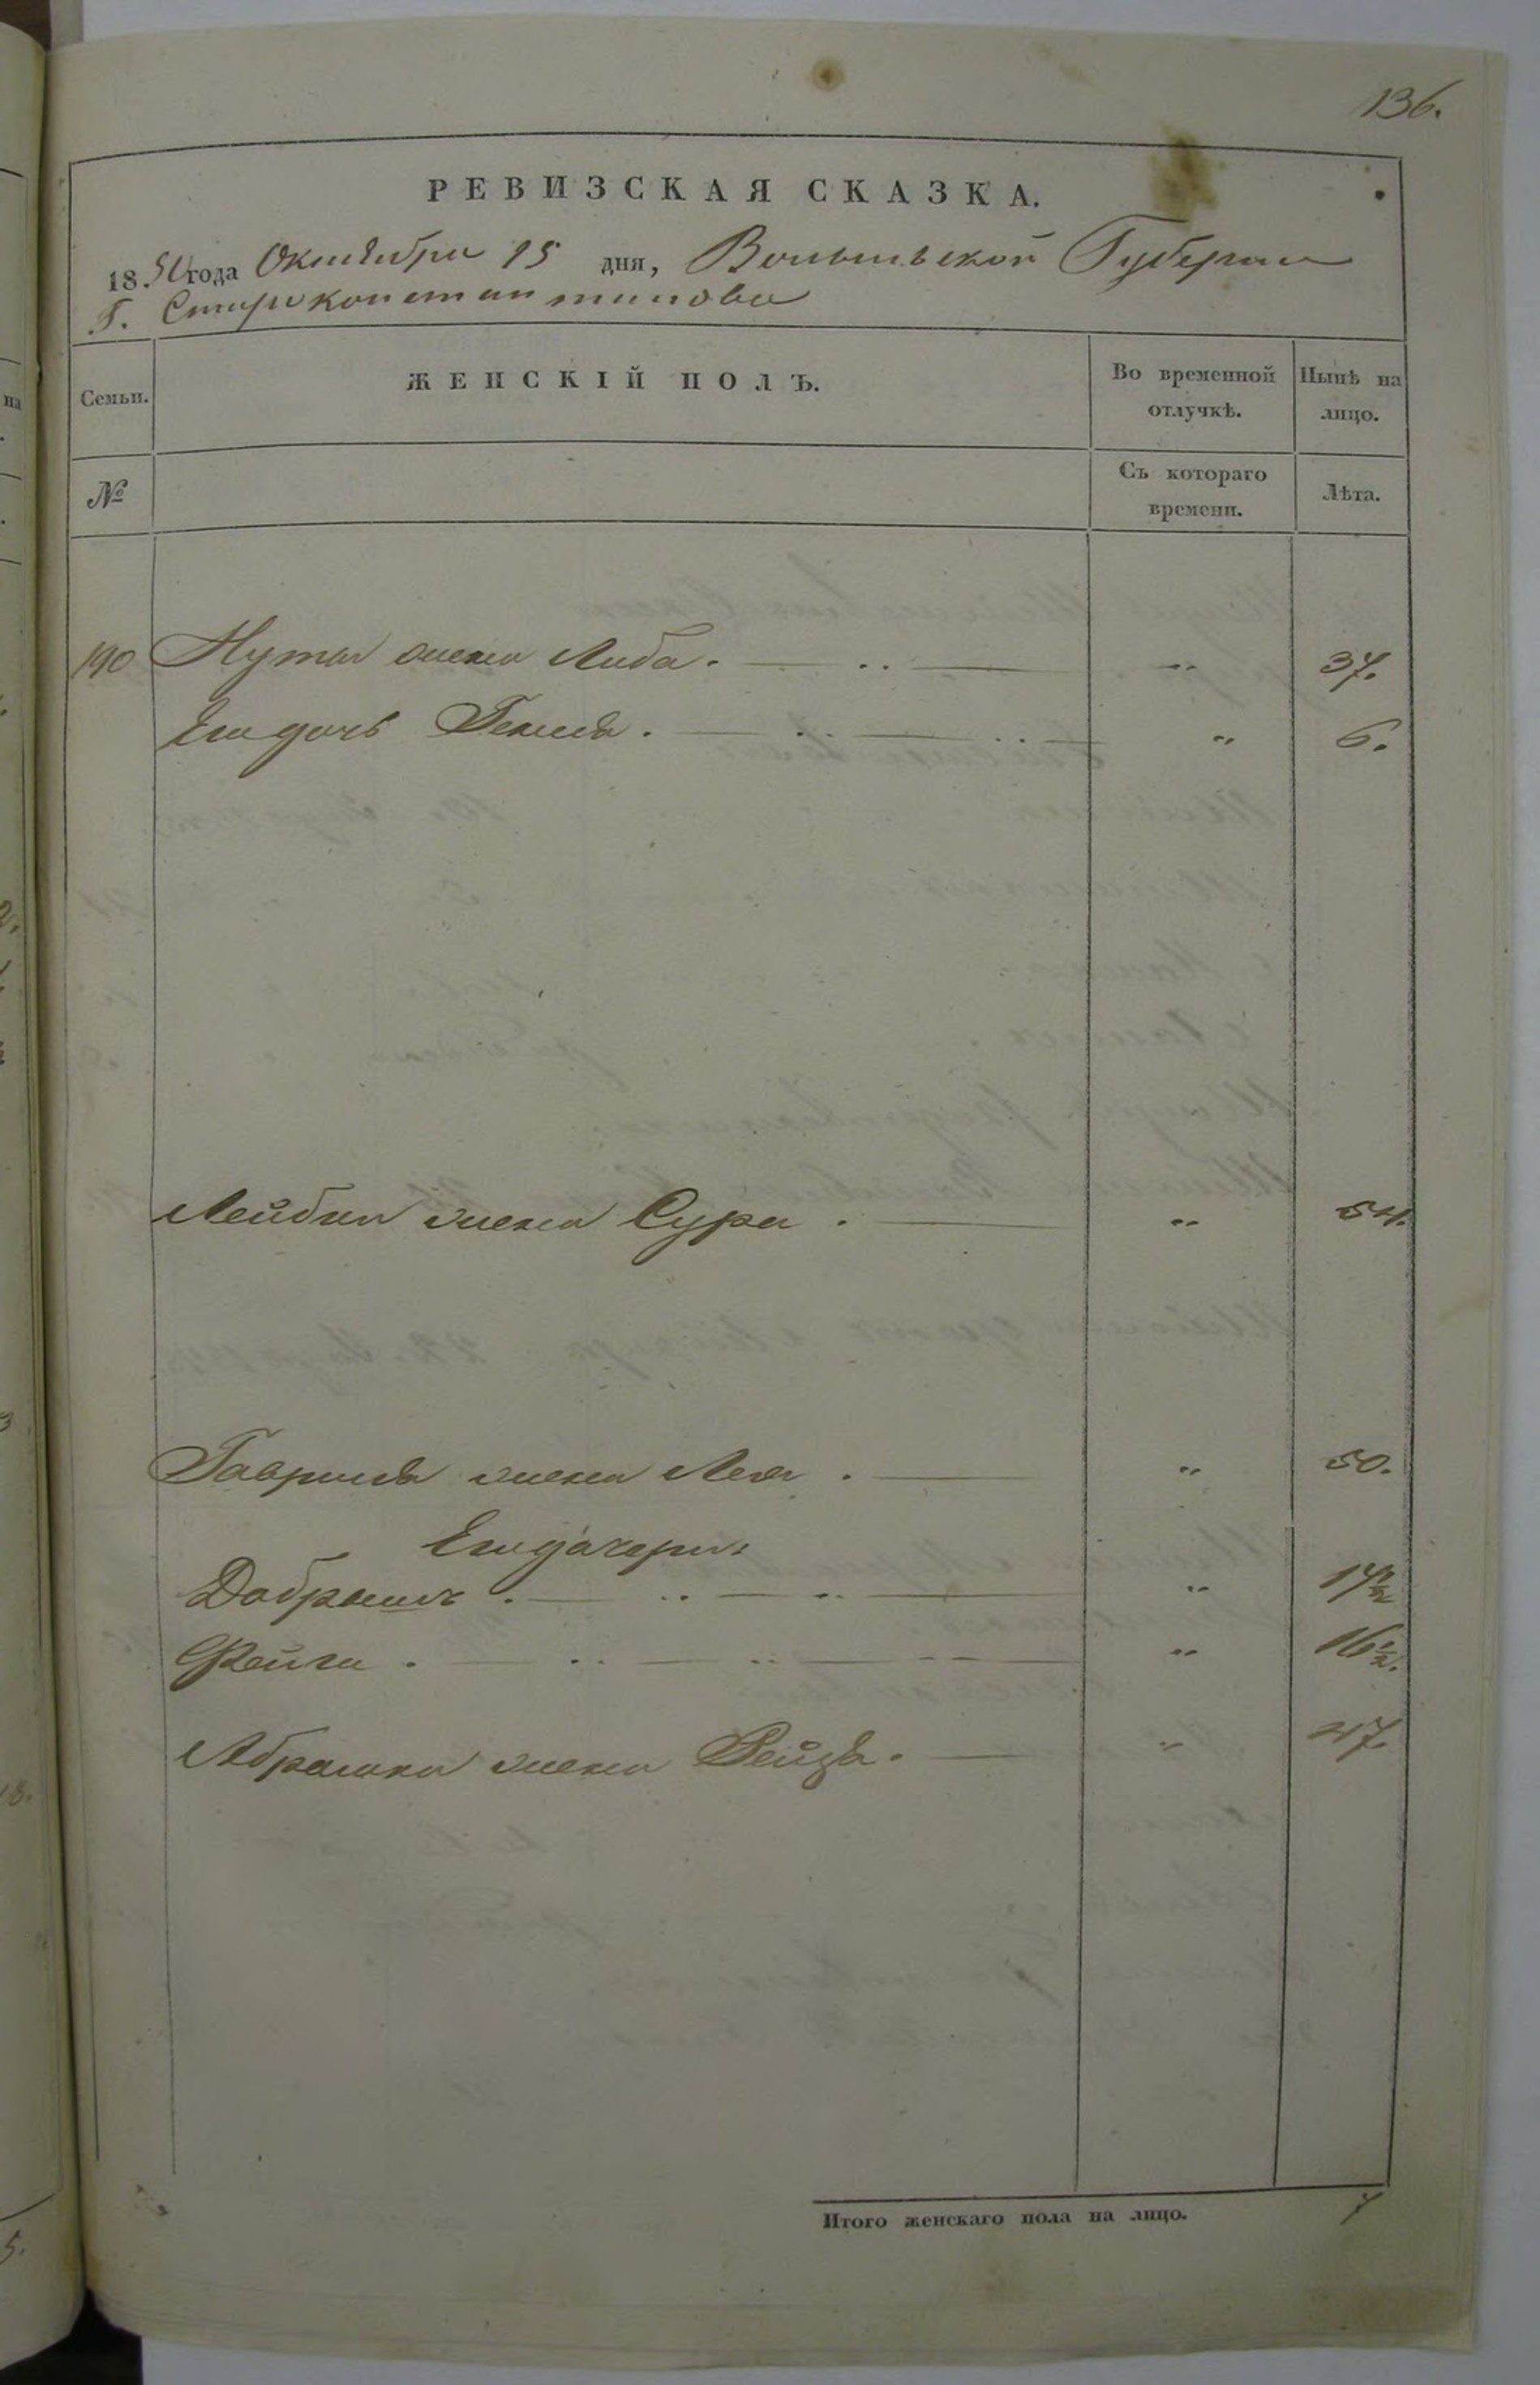 136.
РЕВИЗСКАЯ СКАЗКА.
1850 года Октября 15 дня, Волынской Губернии
Г. Староконстантинова
Семьи. ЖЕНСКІЙ ПОЛЪ. Во временной отлучкѣ. Нынѣ на лицо.
№ Съ котораго времени. Лѣта.
190 Нуты жена Либа. „ 37.
Его дочь „ 6.
Лейбы жена Сура. „ 54.
Гавриля жена Лея. „ 50.
Его дочери:
Добрышъ. „ 17½
Фейга. „ 16½.
Абрамка жена Рейзя. „ 47.
Итого женскаго пола на лицо. 7